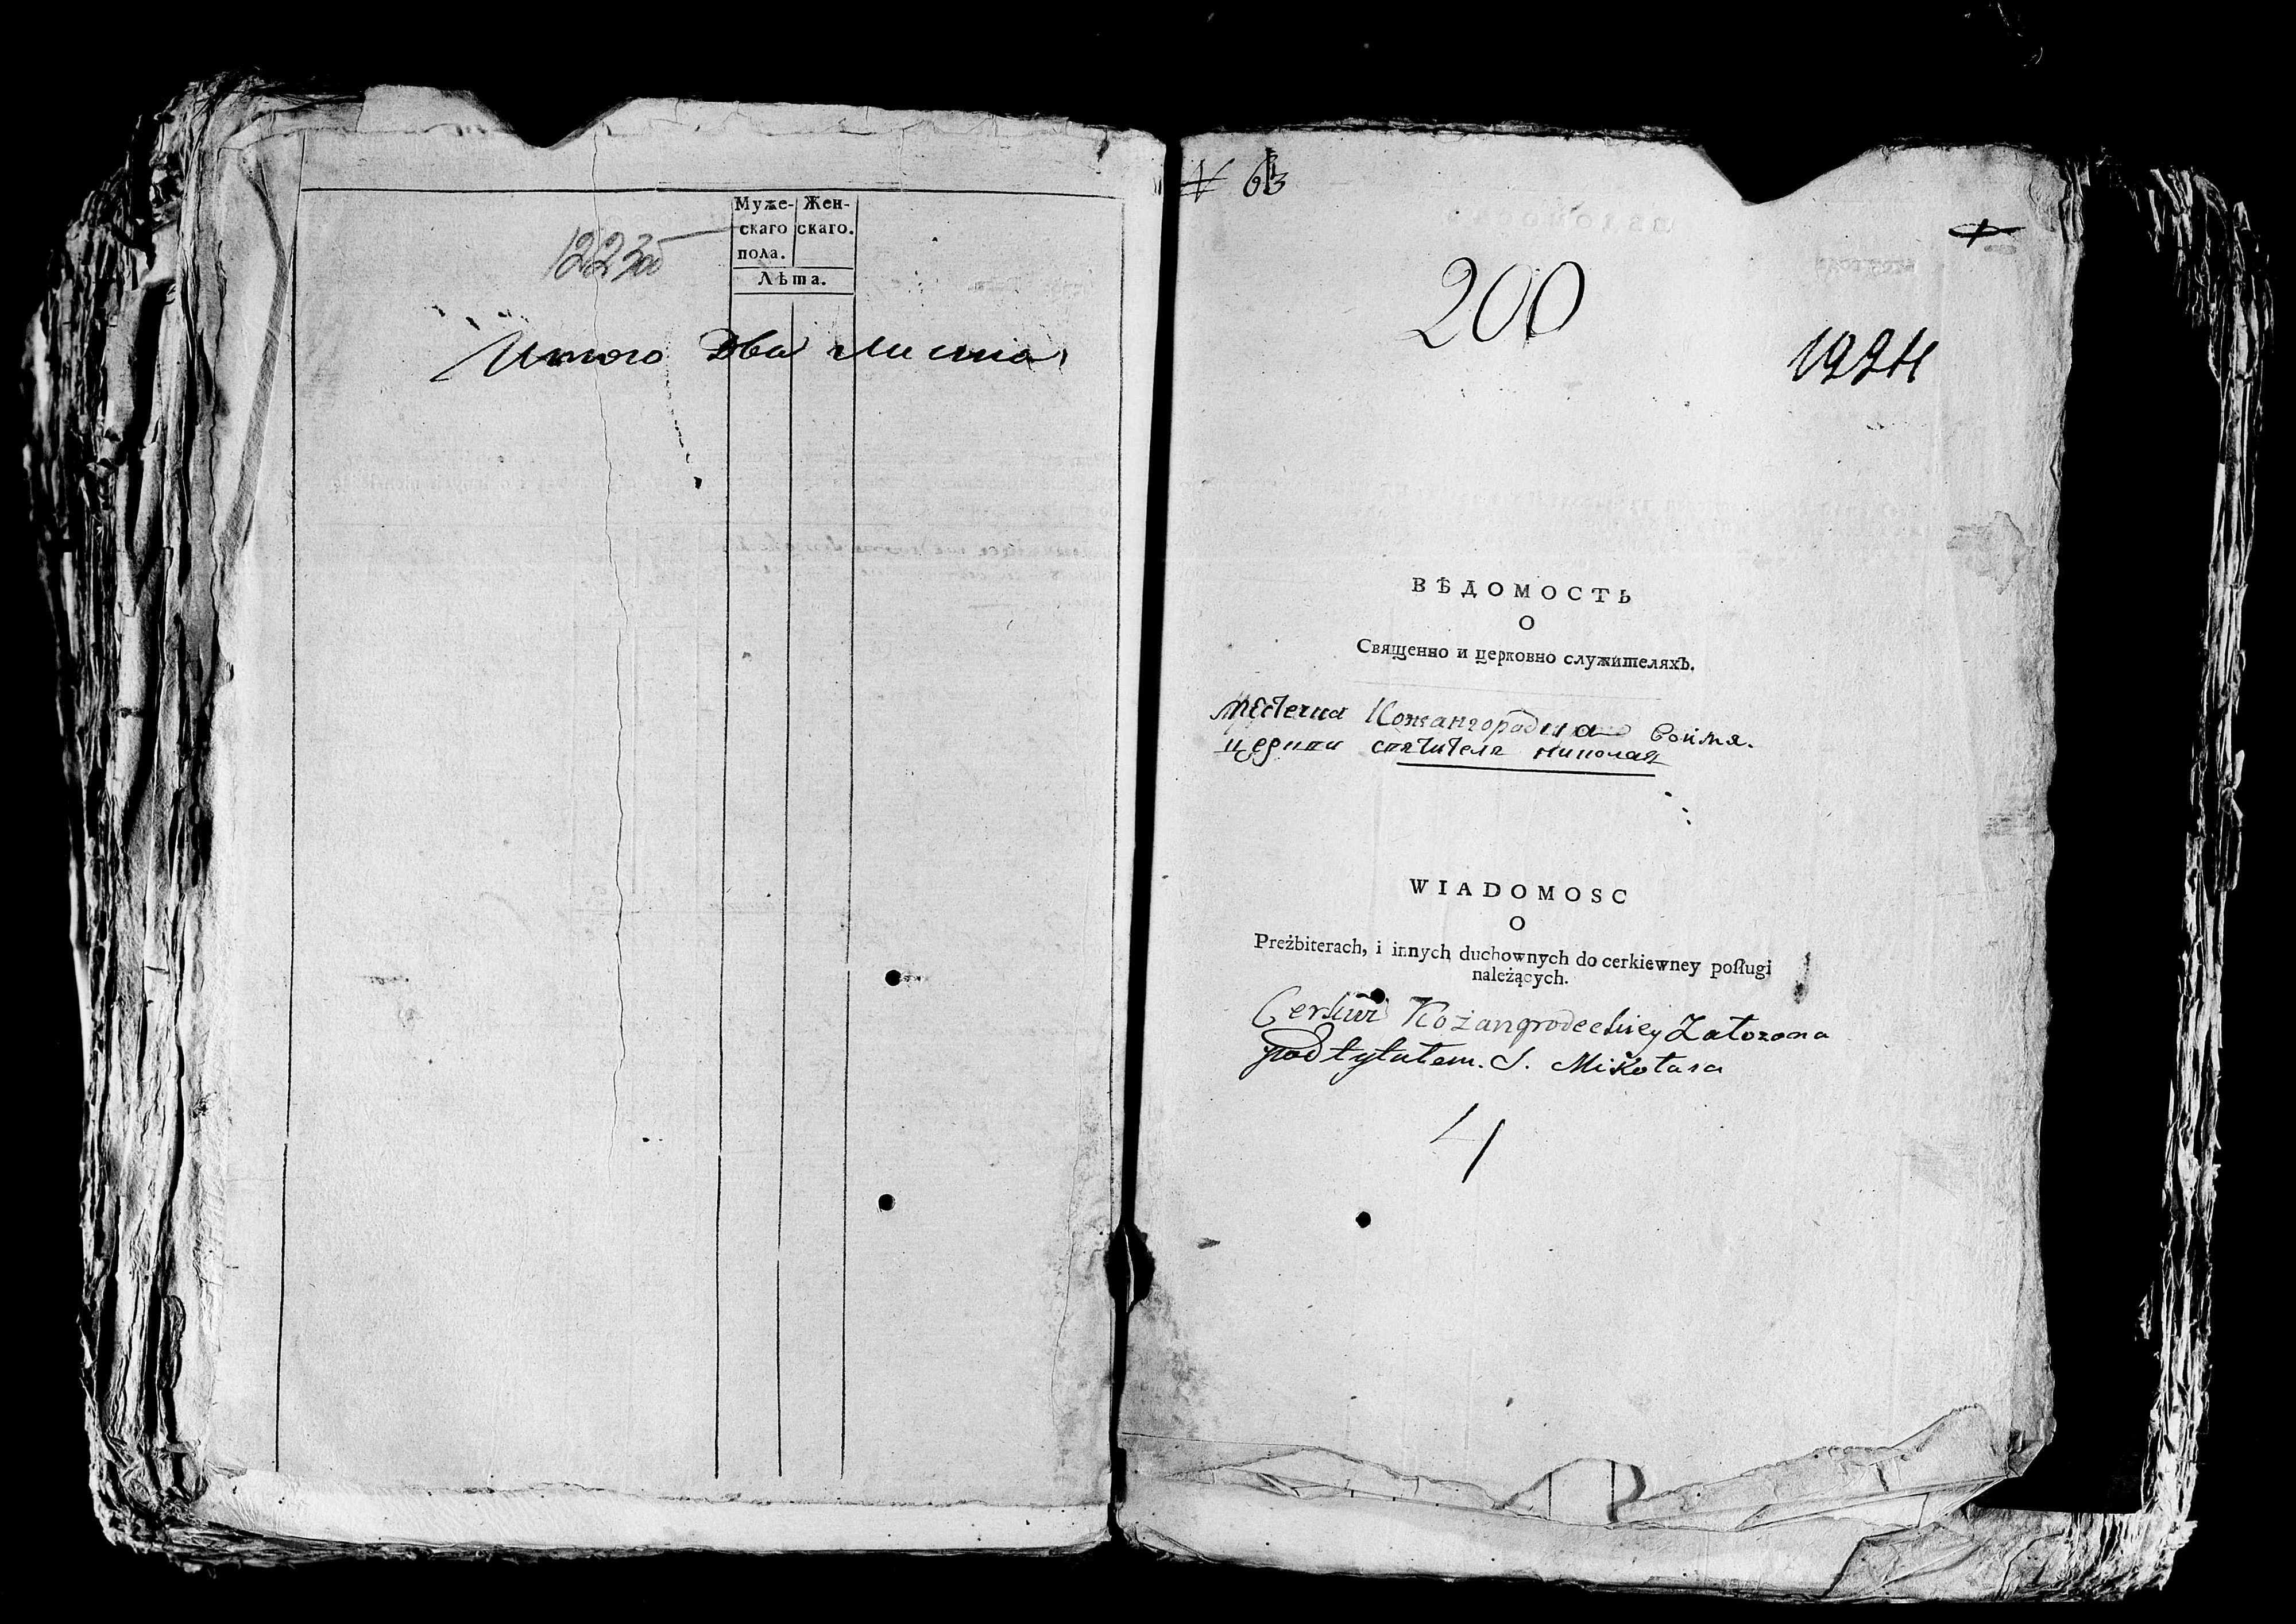 Муже- Жен-
скаго скаго.
пола.
Лѣта.
Итого два листа
№ 63
200
1224
ВѢДОМОСТЬ
О
Священно и церковно служителяхъ.
Местечка Кожангородка
церкви святителя николая
WIADOMOSC
O
Preżbiterach, i innych duchownych do cerkiewney posługi
należących.
Cerkwi Kożangrodeckiey Założona
pod tytułem. S. Mikołaia
4